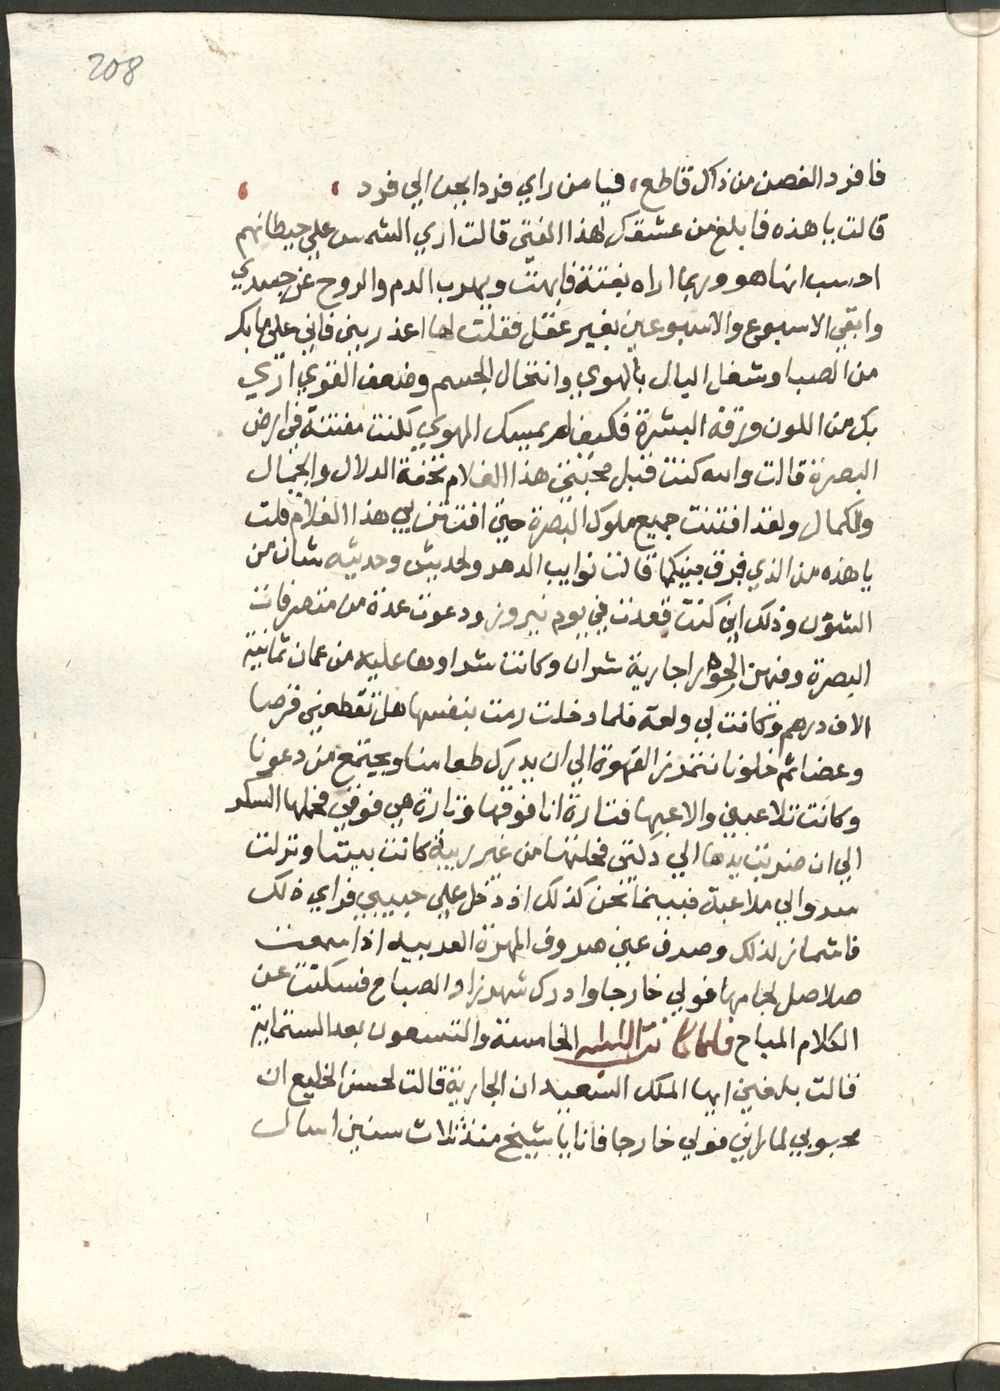 208
فافرد الغصن من ذاك قاطع، فيا من راي فردا يحن الي فرد، ،
قالت يا هذه فما بلغ من عشقك لهذا الفتى قالت اري الشمس علي حيطانهم
احسب انها هو وربما اراه بغتة فابهت ويهرب الدم والروح عن جسدي
وابقي الاسبوع والاسبوعين بغير عقل فقلت لها اعذريني فاني على ما بك
من الصبا وشغل البال بالهوي وانتحال الجسم وضعف القوي اري
بك من اللون ورقة البشرة فكيف لم يمسك الهوي لكنت مفتنة في ارض
البصرة قالت والله كنت قبل محبتي هذا الغلام تحفة الدلال والجمال
والكمال ولقد افتنت جميع ملوك البصرة حتي افتتن بي هذا الغلام قلت
يا هذه من الذي فرق بينكما قالت نوايب الدهر ولحديثي وحديثه شان من
الشؤن وذلك اني كنت قعدت في يوم نيروز ودعوت عدة من متصرفات
البصرة ومنهن الجوار جارية شران وكانت شراوها عليه من عمان ثمانية
الاف درهم وكانت لي ولعة فلما دخلت رمت بنفسها هل تقطعني قرصا
وعضا ثم خلونا نتمزز القهوة الي ان يدرك طعامنا ويجتمع من دعونا
وكانت تلاعبني والاعبها فتارة انا فوقها وتارة هي فوقي فحملها السكر
الي ان ضربت يدها الي دكتي فحلتها من غير ريبة كانت بيننا ونزلت
سروالي ملاعبة فبينما نحن كذلك اذ دخل علي حبيبي فراي ذلك
فاشماز لذلك وصدف عني صدوف المهرة العربيه اذا سمعت
صلاصل لجامها فولي خارجا وادرك شهرزاد الصباح فسكتت عن
الكلام المباح فلما كانت الليلة الخامسة والتسعون بعد الستماية
قالت بلغني ايها الملك السعيد ان الجارية قالت لحسن الخليع ان
محبوبي لما راني فولي خارجا فانا يا شيخ منذ ثلاث سنين اسال